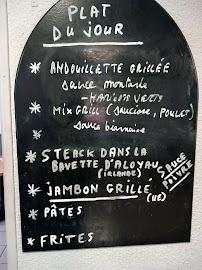 PLAT
DU JOUR
* ANDOUILLETTE GRILLÉE
sauce moutarde
- HARICOTS VERTS
* MIX GRILL (saucisse, POULET)
sauce béarnaise
* STEACK DANS LA
BAVETTE D'ALOYAU
(IRLANDE)
SAUCE
POIVRE
* JAMBON GRILLÉ
(UE)
* PÂTES
* FRITES